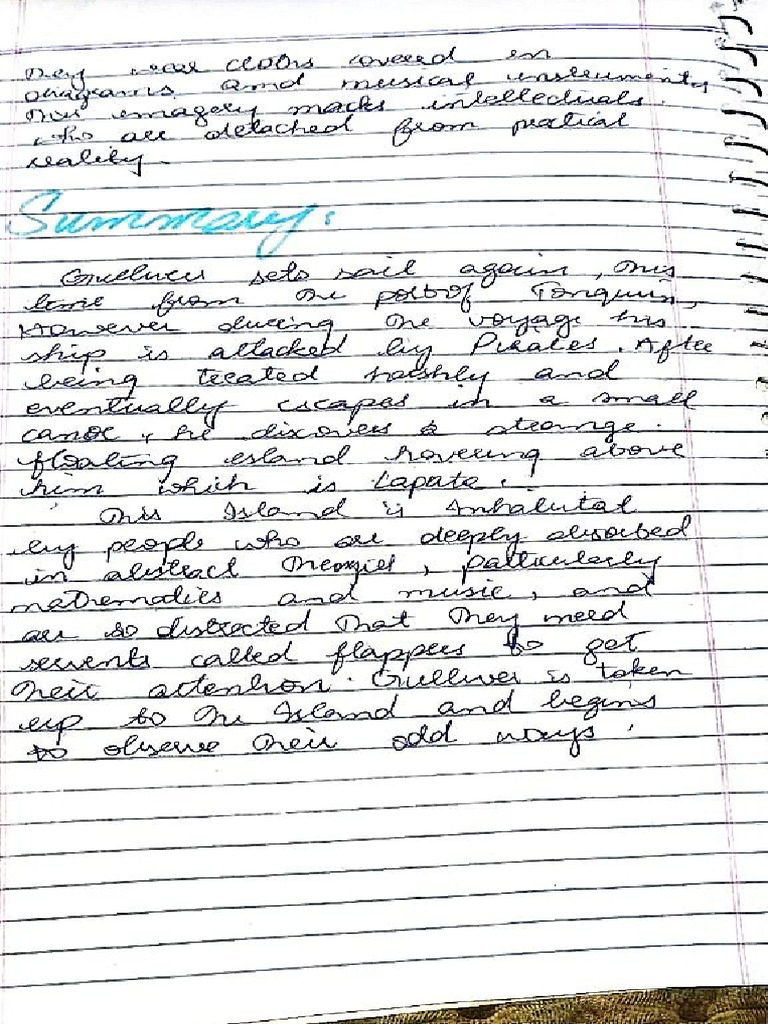 They wear cloths covered in
diagrams and musical instruments,
This imagery mocks intellectuals.
who are detached from pratical
reality.
Summary:
Gulliver sets sail again, this
time from the port of Tonquin,
However during the voyage his
ship is attacked by Pirates. After
being treated harshly and
eventually escapes in a small
canoe, he discovers a strange.
floating island hovering above
him which is Lapata.
This Island is Inhabital
by people who are deeply absorbed
in abstract theories, particularly
mathematics and music, and
are so distracted that they need
servents called flappers to get
their attention. Gulliver is taken
up to the Island and begins
to observe their odd ways.